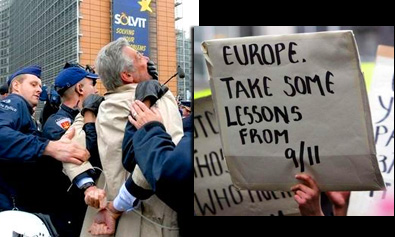 SOLVIT
EUROPE.
TAKE SOME
LESSONS
FROM
9/11
WHO